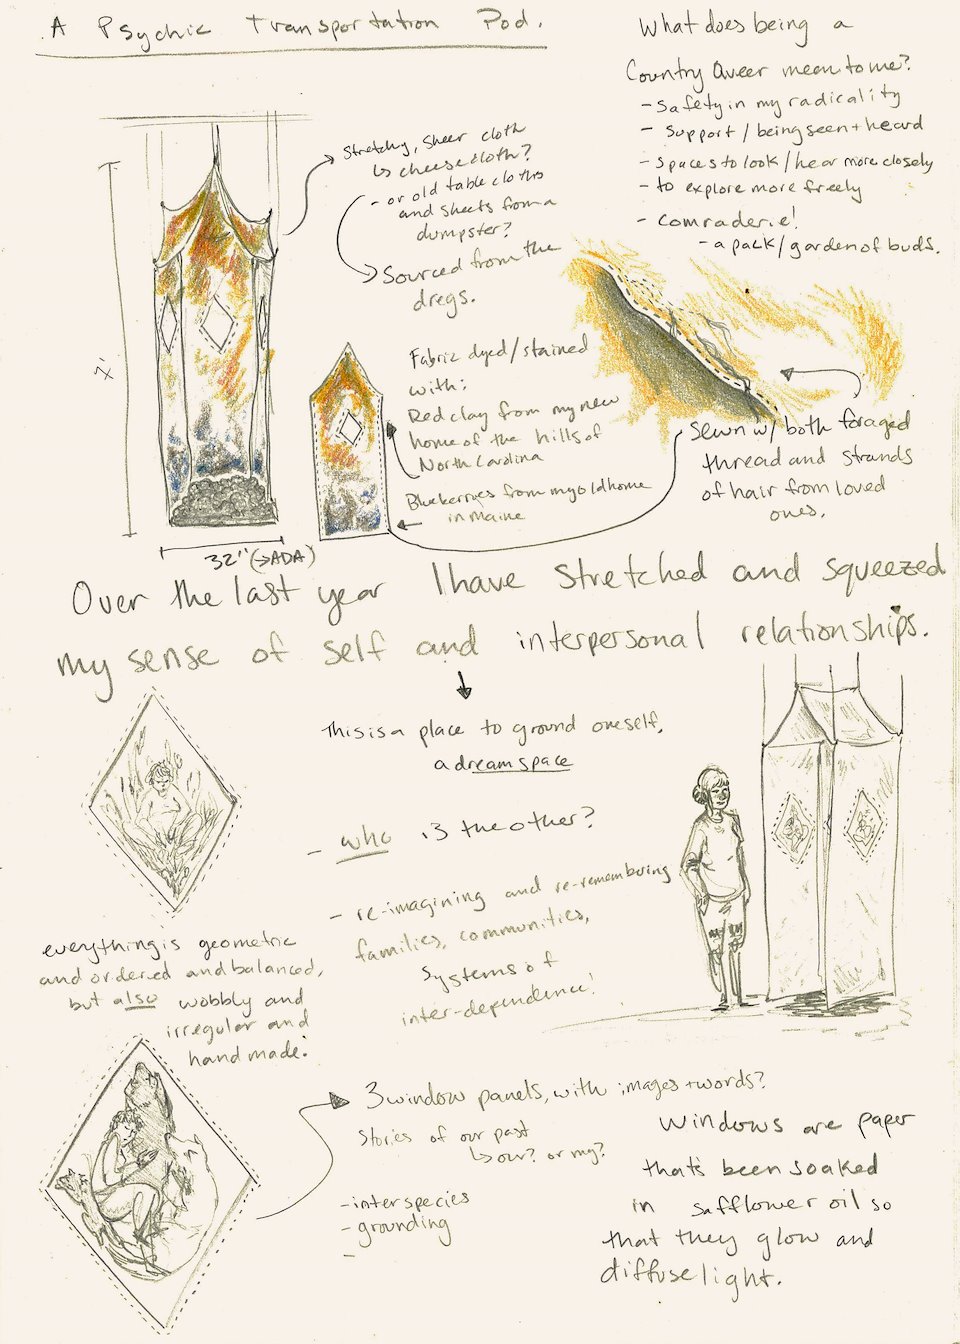 A Psychic Transportation Pod.
What does being a
Country Queer mean to me?
- safety in my radicality
- support / being seen + heard
- spaces to look / hear more closely
- to explore more freely
- comraderie!
- a pack / garden of buds.
Stretchy, sheer cloth
↳ cheesecloth?
- or old table cloths
and sheets from a
dumpster?
Sourced from the
dregs.
7'
32" (→ADA)
Fabric dyed / stained
with:
Red clay from my new
home of the hills of
North Carolina
Blueberries from my old home
in Maine
Sewn w/ both foraged
thread and strands
of hair from loved
ones.
Over the last year I have stretched and squeezed
my sense of self and interpersonal relationships.
This is a place to ground oneself,
a dreamspace
- who is the other?
- re-imagining and re-remembering
families, communities,
systems of
inter-dependence!
everything is geometric
and ordered and balanced,
but also wobbly and
irregular and
handmade!
3 window panels, with images + words?
Stories of our past
↳ our? or my?
- interspecies
- grounding
-
Windows are paper
that's been soaked
in safflower oil so
that they glow and
diffuse light.